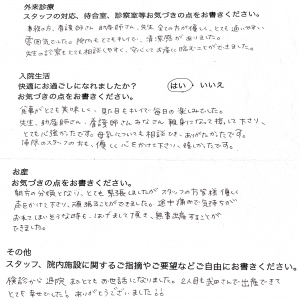 外来診療
スタッフの対応、待合室、診察室等お気づきの点をお書きください。
事務の方、看護師さん、助産師さん、先生 全ての方が優しく、とても通いやすい
雰囲気でした。院内もとてもキレイで、清潔感がありました。
先生の診察もとても相談しやすく、安心してお産に臨むことができました。
入院生活
快適にお過ごしになれましたか？ はい ・ いいえ
お気づきの点をお書きください。
食事がとても美味しく、見た目もキレイで毎日の楽しみでした。
先生、助産師さん、看護師さん みなさん 親身になって接して下さり、
とても心強かったです。母乳についても相談でき、ありがたかったです。
掃除のスタッフの方も、優しく声をかけて下さり、嬉しかったです。
お産
お気づきの点をお書きください。
初めての分娩となり、とても緊張しましたが スタッフの方皆様 優しく
声をかけて下さり、頑張ることができました。途中痛みで気持ちが
おれてしまいそうな時も、はげまして頂き、無事出産することが
できました。
その他
スタッフ、院内施設に関するご指摘やご要望などご自由にお書きください。
検診から退院まで とてもお世話になりました。2人目も 出産できて
とても幸せでした。ありがとうございました!!